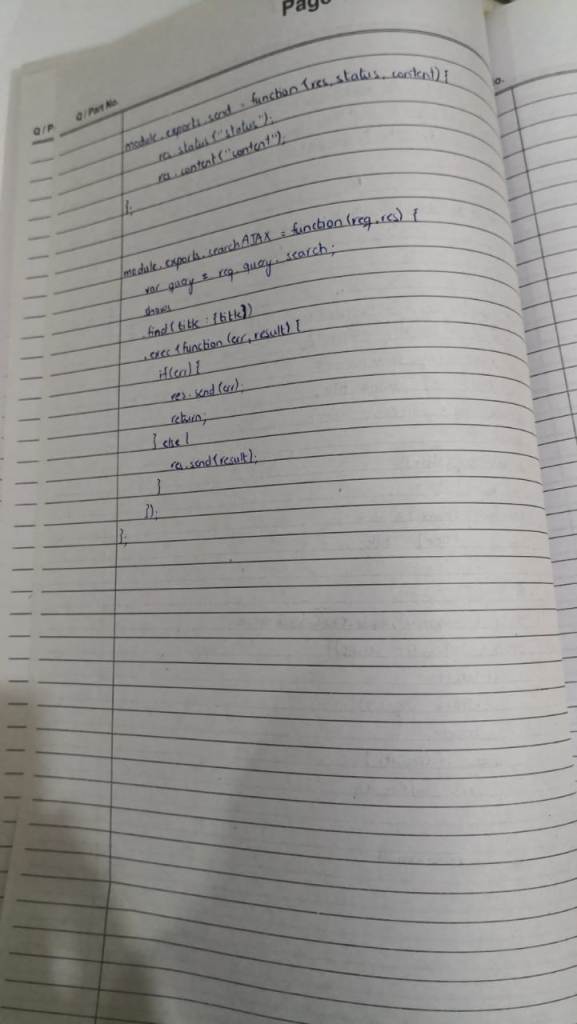 Page
Q / P.
Q / Part No.
o.
module.exports.send = function (res, status, content) {
res.status("status");
res.content("content");
};
module.exports.searchAJAX = function (req, res) {
var query = req.query.search;
shows
.find(title : {title})
.exec (function (err, result) {
if(err) {
res.send(err);
return;
} else {
res.send(result);
}
});
};